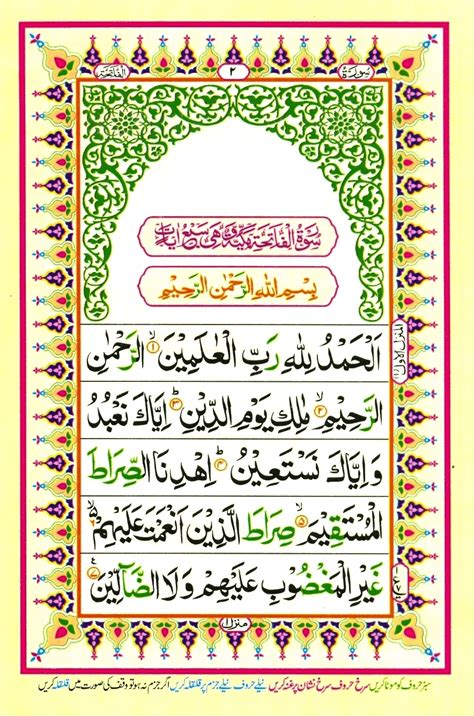 سورة ٢ الفاتحة
سورة الفاتحة مكية وهي سبع ايات
بِسْمِ اللهِ الرَّحْمٰنِ الرَّحِيْمِ
اَلْحَمْدُ لِلّٰهِ رَبِّ الْعٰلَمِيْنَ ۙ﴿۱﴾ الرَّحْمٰنِ
الرَّحِيْمِ ۙ﴿۲﴾ مٰلِكِ يَوْمِ الدِّيْنِ ؕ﴿۳﴾ اِيَّاكَ نَعْبُدُ
وَ اِيَّاكَ نَسْتَعِيْنُ ؕ﴿۴﴾ اِهْدِنَا الصِّرَاطَ
الْمُسْتَقِيْمَ ۙ﴿۵﴾ صِرَاطَ الَّذِيْنَ اَنْعَمْتَ عَلَيْهِمْ ۙ﴿۶﴾
غَيْرِ الْمَغْضُوْبِ عَلَيْهِمْ وَلَا الضَّآلِّيْنَ ﴿۷﴾
المنزل الاول
منزل ۱
سبز حروف کو موٹا کریں سرخ حروف سرخ نشان پر غنہ کریں نیلے حروف نیلے جزم پر قلقلہ کریں اگر جزم نہ ہو تو وقف کی صورت میں قلقلہ کریں